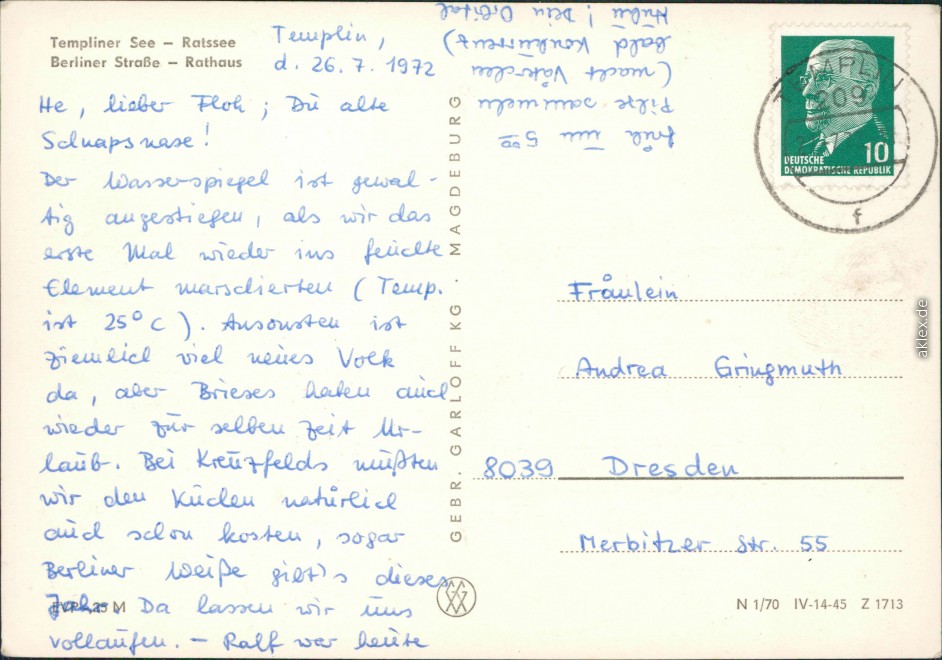 Templiner See – Ratssee
Berliner Straße – Rathaus
Templin,
d. 26. 7. 1972
He, lieber Floh; Du alte
Schnapsnase!
Der Wasserspiegel ist gewal-
tig angestiegen, als wir das
erste Mal wieder ins feuchte
Element marschierten (Temp.
ist 25°C). Ansonsten ist
ziemlich viel neues Volk
da, aber Brieses haben auch
wieder zur selben Zeit Ur-
laub. Bei Kreuzfelds mußten
wir den Kuchen natürlich
auch schon kosten, sogar
Berliner Weiße gibt's dieses
Jahr. Da lassen wir uns
vollaufen. – Ralf war heute
früh um 5⁰⁰
Pilze sammeln
(macht Väterchen
bald Konkurrenz)
Huhu! Dein Orbital
EVP 0,25 M
GEBR. GARLOFF KG · MAGDEBURG
TEMPLIN
209
f
10
DEUTSCHE
DEMOKRATISCHE REPUBLIK
Fräulein
Andrea Gringmuth
8039 Dresden
Merbitzer Str. 55
N 1/70 IV-14-45 Z 1713
aklex.de